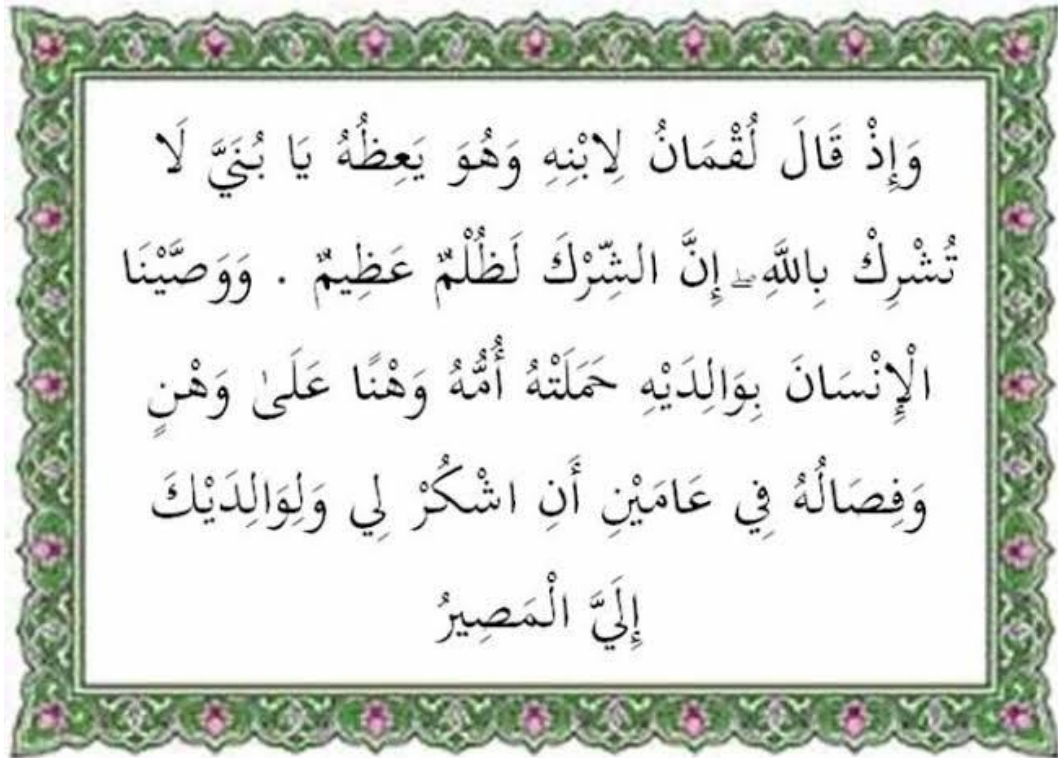 وَإِذْ قَالَ لُقْمَانُ لِابْنِهِ وَهُوَ يَعِظُهُ يَا بُنَيَّ لَا
تُشْرِكْ بِاللَّهِ ۖ إِنَّ الشِّرْكَ لَظُلْمٌ عَظِيمٌ . وَوَصَّيْنَا
الْإِنْسَانَ بِوَالِدَيْهِ حَمَلَتْهُ أُمُّهُ وَهْنًا عَلَىٰ وَهْنٍ
وَفِصَالُهُ فِي عَامَيْنِ أَنِ اشْكُرْ لِي وَلِوَالِدَيْكَ
إِلَيَّ الْمَصِيرُ